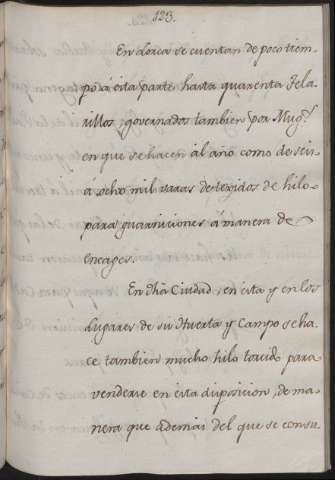 123.
En Lorca se cuentan de poco tiem-
po á esta parte hasta quarenta Tela-
rillos governados tambien por Mug.s
en que se hacen al año como de seis
á ocho mil varas de tegidos de hilo
para guarniciones á manera de
encages.
En dha Ciudad, en esta y en los
Lugares de su Huerta y Campo se ha-
ce tambien mucho hilo torcido para
venderse en esta disposicion, de ma-
nera que ademas del que se consu